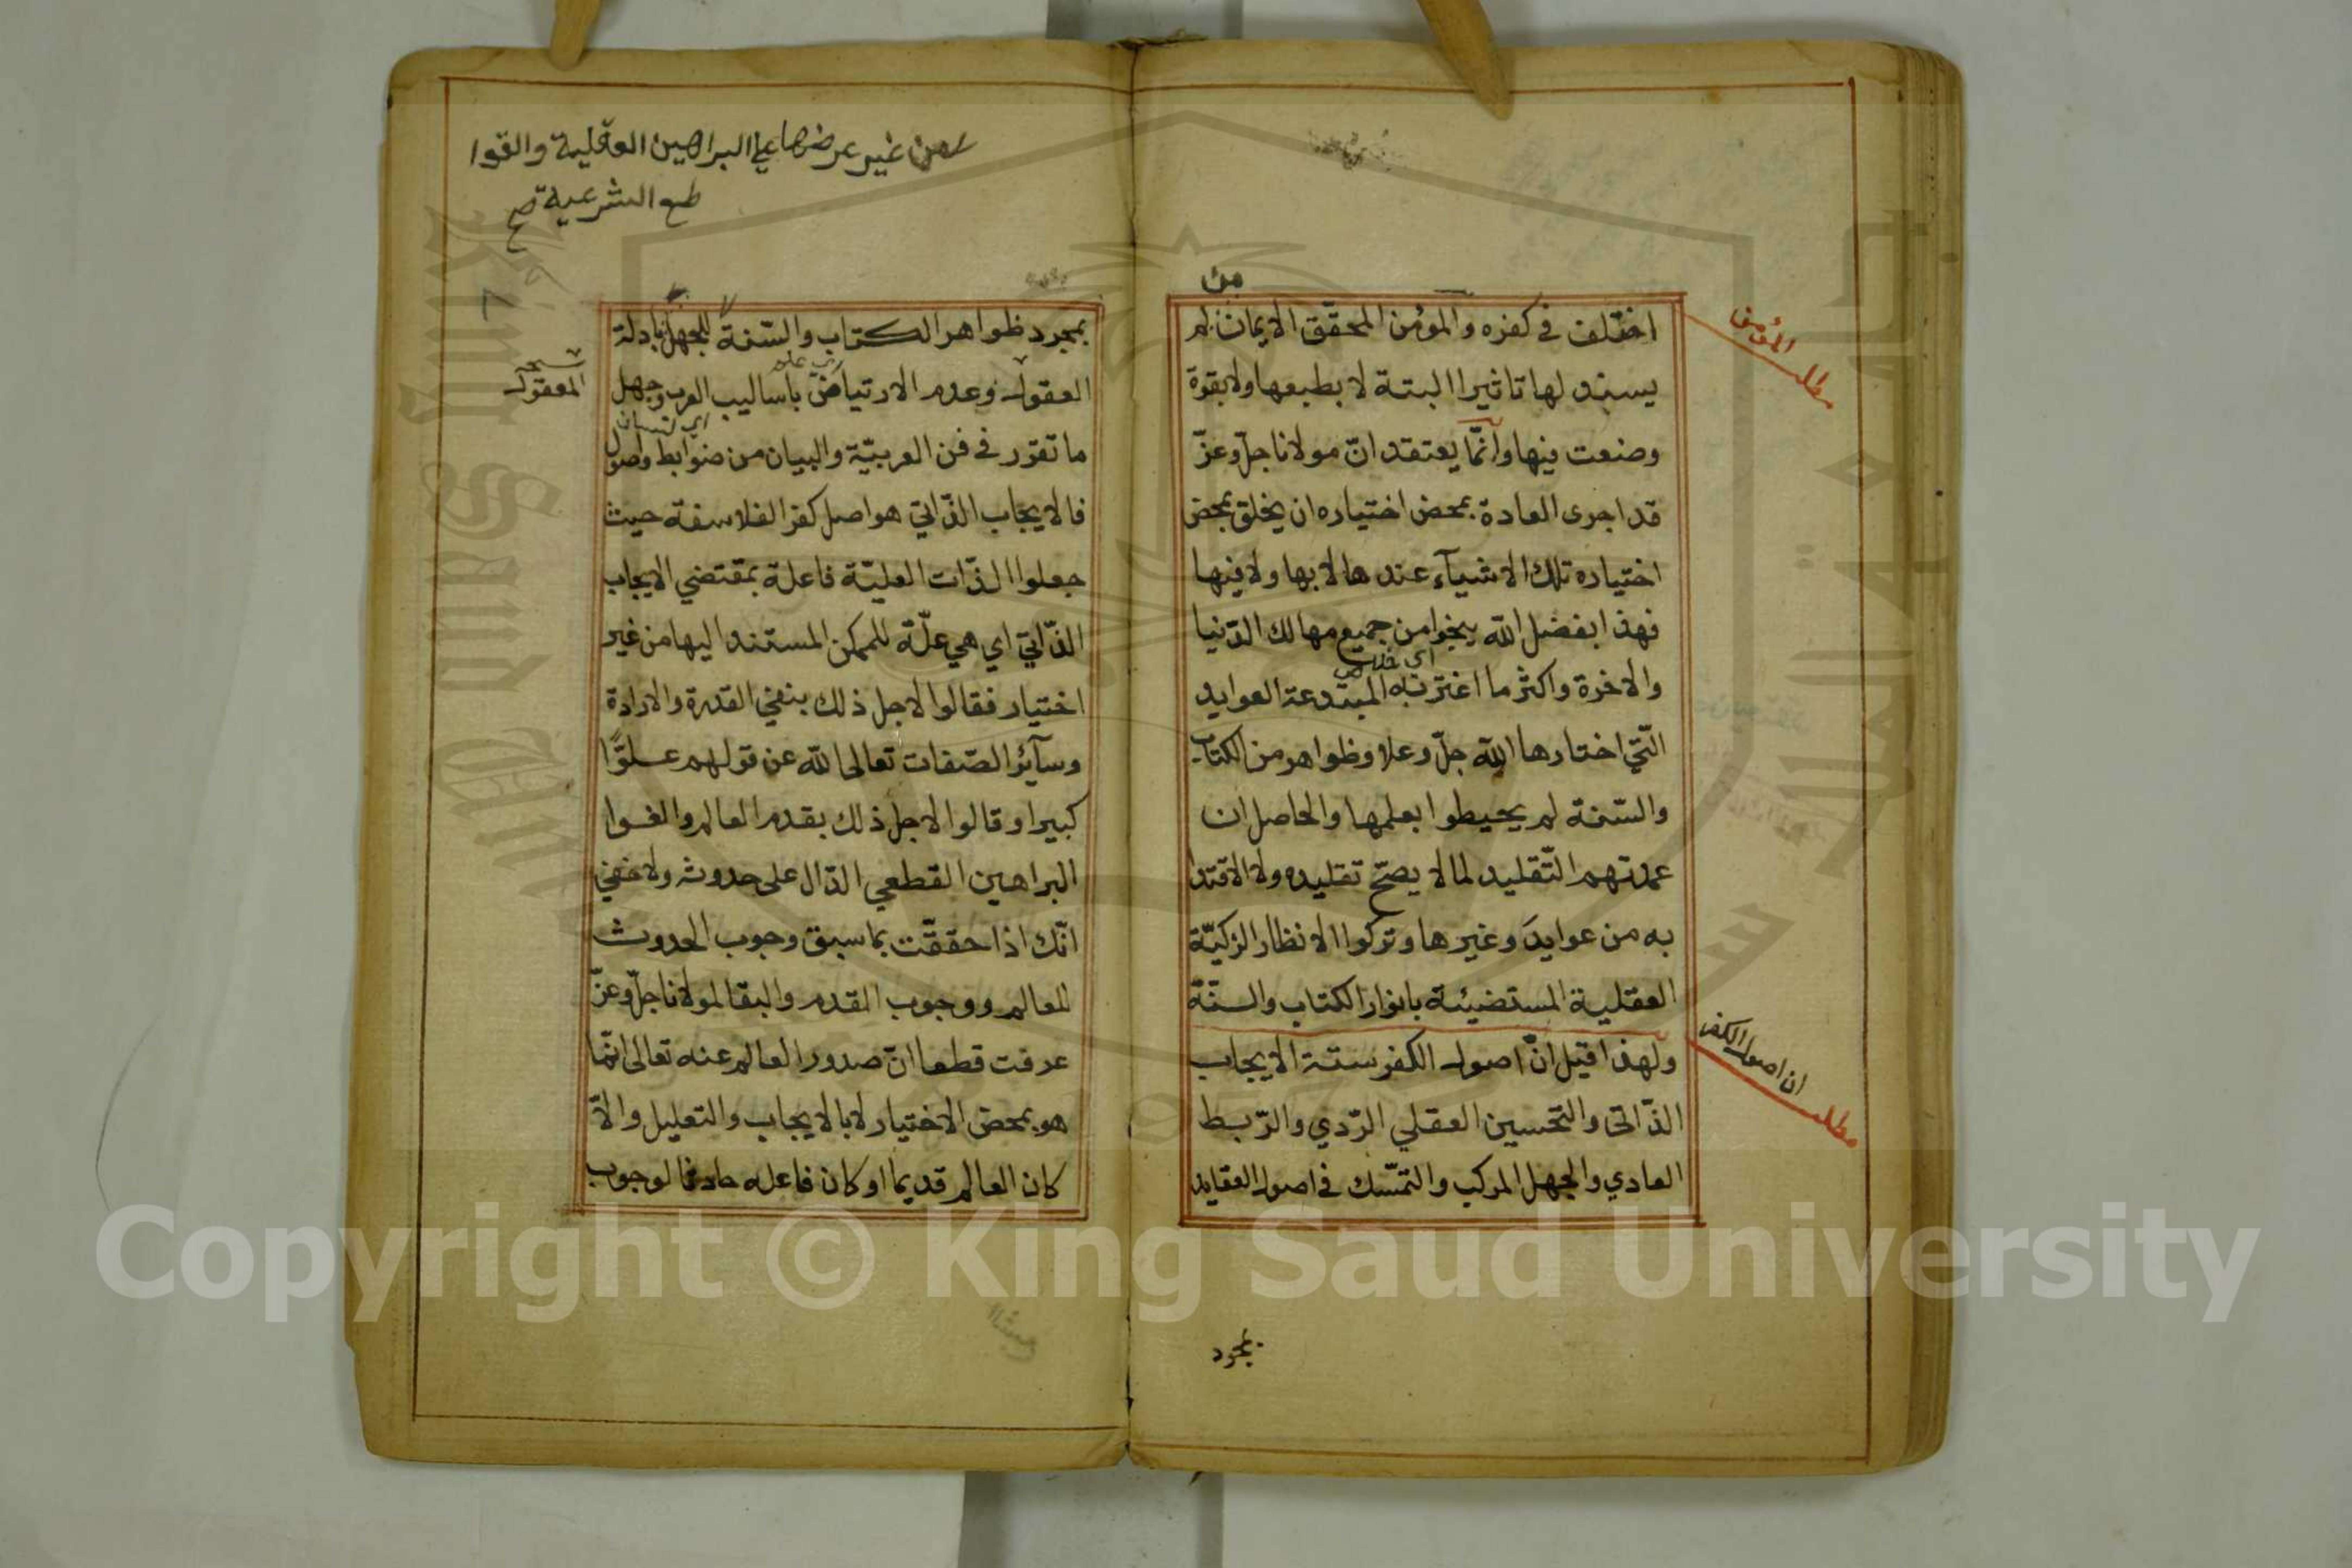 من
اختلف في كفره والمؤمن المحقق الايمان لم
يسند لها تاثيرا البتة لا بطبعها ولا بقوة
وضعت فيها وانّما يعتقد انّ مولانا جلّ وعزّ
قد اجرى العادة بمحض اختياره ان يخلق بمحض
اختياره تلك الاشيآء عندها لا بها ولا فيها
فهذا بفضل الله ينجوا من جميع مهالك الدّنيا
والاخرة واكثر ما اغتر به المبتدعة العوايد
الّتي اختارها الله جلّ وعلا وظواهر من الكتاب
والسّنة لم يحيطوا بعلمها والحاصل ان
عمدتهم التّقليد لما لا يصحّ تقليده ولا الاقتدا
به من عوايد وغيرها وتركوا الانظار الزكيّة
العقلية المستضيئة بانوار الكتاب والسنّة
ولهذا قيل انّ اصول الكفر ستة الايجاب
الذّاتي والتحسين العقلي الرّدي والرّبط
العادي والجهل المركب والتمسّك في اصول العقايد
بمجرد
مطلب المؤمن
مطلب ان اصول الكفر
من غير عرضها علي البراهين العقلية والقوا
طع الشرعية صح
بمجرد ظواهر الكتاب والسّنة للجهل بادلة
العقول وعدم الارتياض باساليب العرب وجهل
ما تقرر في فن العربيّة والبيان من ضوابط واصول
فالايجاب الذّاتي هو اصل كفر الفلاسفة حيث
جعلوا الذّات العليّة فاعلة بمقتضي الايجاب
الذّاتي اي هي علّة للممكن المستند اليها من غير
اختيار فقالوا لاجل ذلك بنفي القدرة والارادة
وسآئر الصّفات تعالى الله عن قولهم علوّا
كبيرا وقالوا لاجل ذلك بقدم العالم والغوا
البراهين القطعي الدّال على حدوثه ولا خفي
انّك اذا حققّت بما سبق وجوب الحدوث
للعالم ووجوب القدم والبقا لمولانا جلّ وعزّ
عرفت قطعا انّ صدور العالم عنه تعالى انّما
هو بمحض الاختيار لا بالايجاب والتعليل والّا
كان العالم قديما او كان فاعله حادثا لوجوب
نسخه
المعقول
Copyright © King Saud University